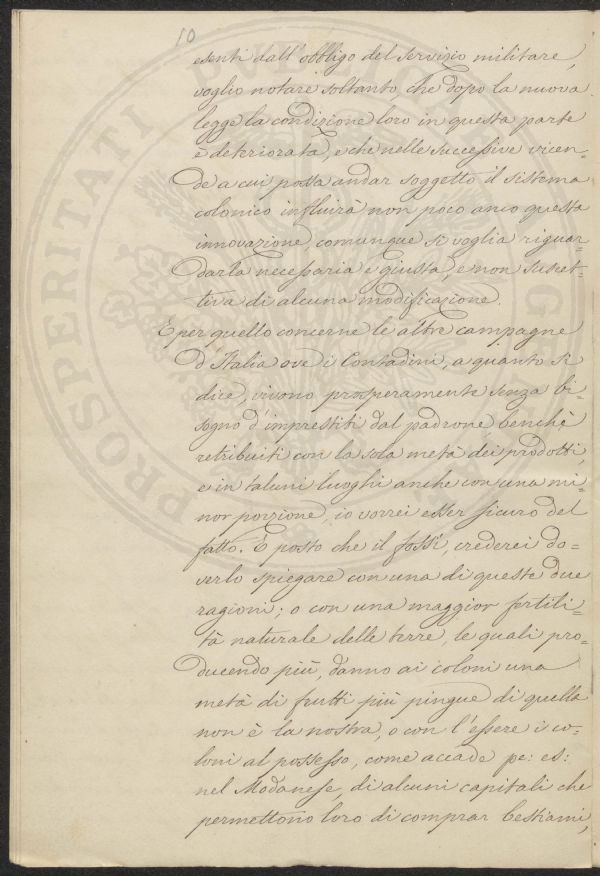 10
esenti dall'obbligo del servizio militare,
voglio notare soltanto, che dopo la nuova
legge la condizione loro in questa parte
è deteriorata, e che nelle successive vicen-
de a cui possa andar soggetto il sistema
colonico influirà non poco anco questa
innovazione, comunque si voglia riguar-
darla necessaria e giusta, e non suscet-
tiva di alcuna modificazione.
E per quello concerne le altre campagne
d'Italia ove i Contadini, a quanto si
dice, vivono prosperamente senza bi-
sogno d'imprestiti dal padrone, benchè
retribuiti con la sola metà dei prodotti,
e in taluni luoghi anche con una mi-
nor porzione, io vorrei esser sicuro del
fatto. E posto che il fossi, crederei do-
verlo spiegare con una di queste due
ragioni; o con una maggior fertili-
tà naturale delle terre, le quali pro-
ducendo più, danno ai coloni una
metà di frutti più pingue di quella
non è la nostra, o con l'essere i co-
loni al possesso, come accade pe: es:
nel Modanese, di alcuni capitali che
permettono loro di comprar bestiami,
PROSPERITATI PUBLICAE